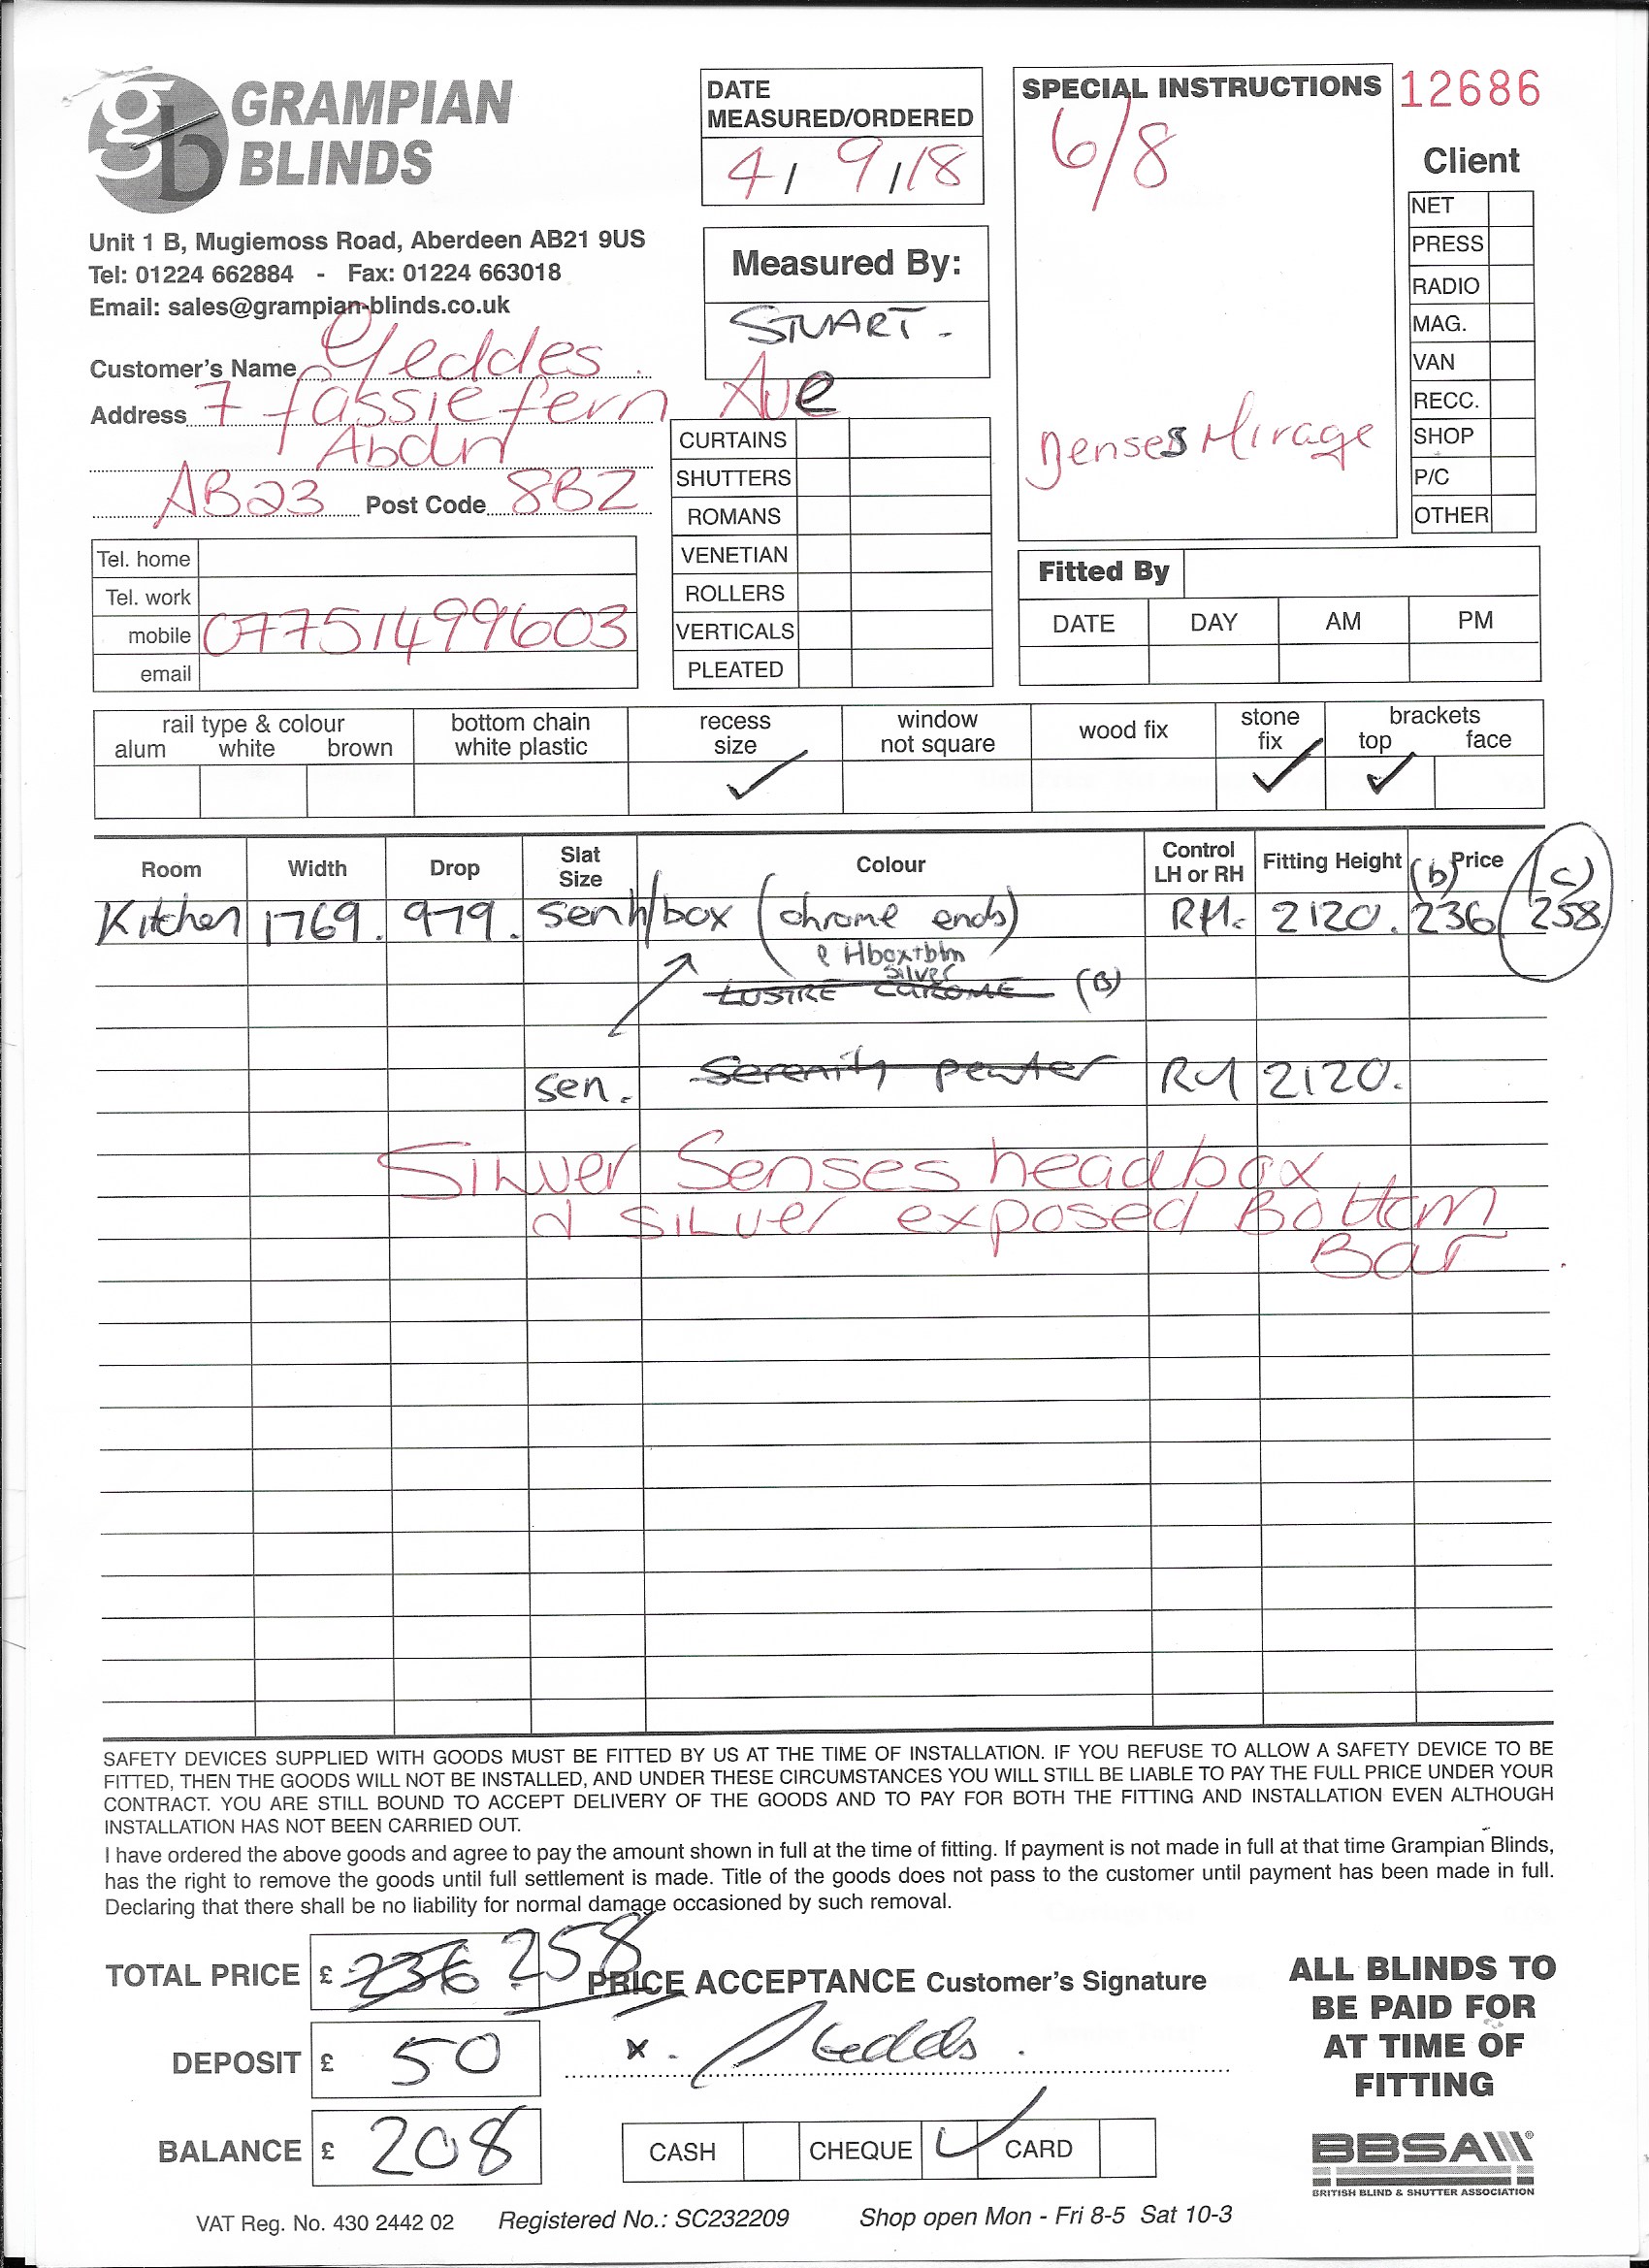 gb GRAMPIAN
BLINDS
Unit 1 B, Mugiemoss Road, Aberdeen AB21 9US
Tel: 01224 662884 - Fax: 01224 663018
Email: sales@grampian-blinds.co.uk
Customer's Name Geddes
Address 7 fassiefern Ave
Abdn
AB23 Post Code 8BZ
Tel. home
Tel. work
mobile 07751499603
email
DATE
MEASURED/ORDERED
4/9/18
Measured By:
STUART.
CURTAINS
SHUTTERS
ROMANS
VENETIAN
ROLLERS
VERTICALS
PLEATED
SPECIAL INSTRUCTIONS
6/8
Senses Mirage
12686
Client
NET
PRESS
RADIO
MAG.
VAN
RECC.
SHOP
P/C
OTHER
Fitted By
DATE DAY AM PM
rail type & colour
alum white brown
bottom chain
white plastic
recess
size ✓
window
not square
wood fix
stone
fix ✓
brackets
top face
✓
Room Width Drop Slat Size Colour Control LH or RH Fitting Height Price
(b) (c)
Kitchen 1769. 979. sen h/box (chrome ends) RH. 2120. 236 258
& Hbox+btm
silver
LUSTRE CHROME (B)
sen. Serenity pewter RH 2120.
Silver Senses headbox
& silver exposed Bottom
Bar.
SAFETY DEVICES SUPPLIED WITH GOODS MUST BE FITTED BY US AT THE TIME OF INSTALLATION. IF YOU REFUSE TO ALLOW A SAFETY DEVICE TO BE
FITTED, THEN THE GOODS WILL NOT BE INSTALLED, AND UNDER THESE CIRCUMSTANCES YOU WILL STILL BE LIABLE TO PAY THE FULL PRICE UNDER YOUR
CONTRACT. YOU ARE STILL BOUND TO ACCEPT DELIVERY OF THE GOODS AND TO PAY FOR BOTH THE FITTING AND INSTALLATION EVEN ALTHOUGH
INSTALLATION HAS NOT BEEN CARRIED OUT.
I have ordered the above goods and agree to pay the amount shown in full at the time of fitting. If payment is not made in full at that time Grampian Blinds,
has the right to remove the goods until full settlement is made. Title of the goods does not pass to the customer until payment has been made in full.
Declaring that there shall be no liability for normal damage occasioned by such removal.
TOTAL PRICE £ 236 258
PRICE ACCEPTANCE Customer's Signature
DEPOSIT £ 50
x. Geddes .
BALANCE £ 208
CASH CHEQUE ✓ CARD
ALL BLINDS TO
BE PAID FOR
AT TIME OF
FITTING
BBSA ®
BRITISH BLIND & SHUTTER ASSOCIATION
VAT Reg. No. 430 2442 02 Registered No.: SC232209 Shop open Mon - Fri 8-5 Sat 10-3